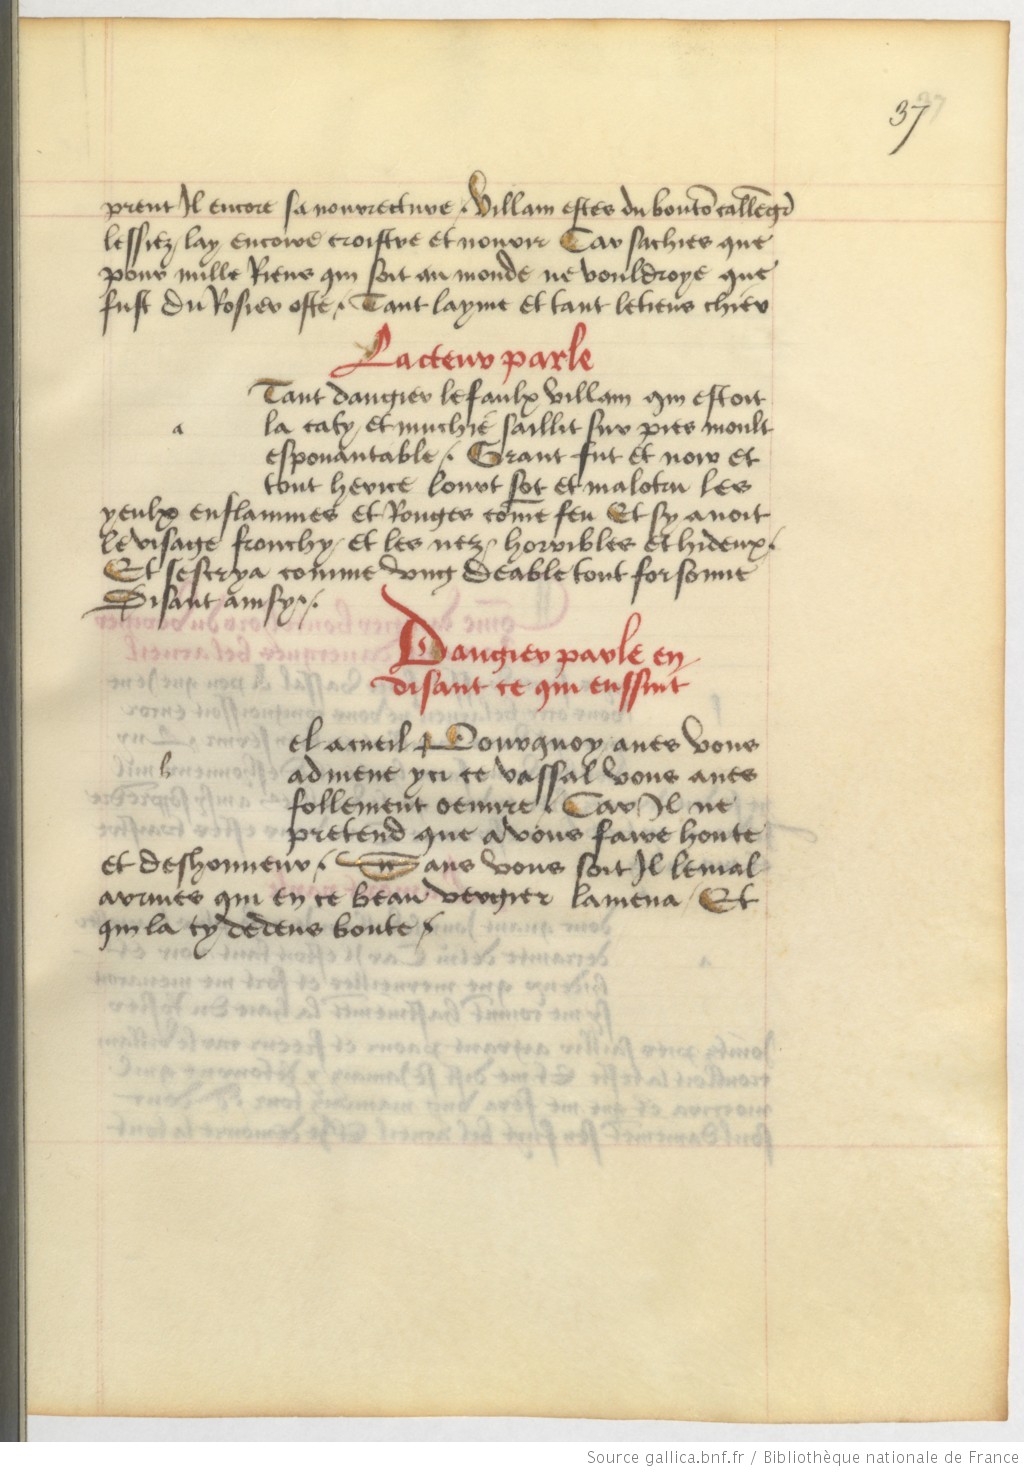 37
prent Il encore sa nourrecture / Villain estes du bouto callengr
lessiez lay encores croistre et nourir Car sachies que
pour mille Riens qui soit au monde ne vouldroye que
fust du Rosier oste / Tant layme et tant letiens chier
Lacteur parle
Tant dangier le faulx villain qui estoit
a
la caty et muchié saillit sur pies moult
espouantable / Grant fut et noir et
tout herice lourt sot et malotru les
yeulx enflammés et Rouges come feu Et sy auoit
le visage fronchy / et les nez / horribles et hideux /
Et sescrya comme vng deable tout forsonne
Disant ainsy /
Dangier parle en
disant ce qui enssuit
el acueil Pourquoy aues vous
b
admene yci ce vassal vous aues
follement oeuure / Car Il ne
pretend que a vous faire honte
et deshonneur / ans vous soit Il lemal
arrues qui en ce beau vergier lamena / Et
qui la cy dedens boute /
Source gallica.bnf.fr / Bibliothèque nationale de France